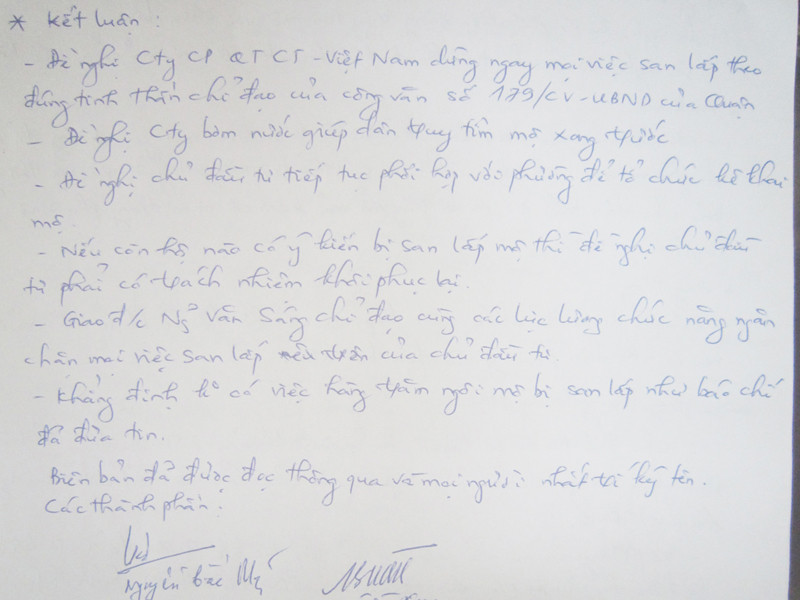 * Kết luận :
- Đề nghị Cty CP QT CT - Việt Nam dừng ngay mọi việc san lấp theo
đúng tinh thần chỉ đạo của công văn số 179/CV-UBND của Quận
- Đề nghị Cty bơm nước giúp dân quy tìm mộ xong trước
- Đề nghị chủ đầu tư tiếp tục phối hợp với phường để tổ chức kê khai
mộ.
- Nếu còn hộ nào có ý kiến bị san lấp mộ thì đề nghị chủ đầu
tư phải có trách nhiệm khôi phục lại.
- Giao đ/c Ng~ Văn Sáng chỉ đạo cùng các lực lượng chức năng ngăn
chặn mọi việc san lấp trên của chủ đầu tư.
- Khẳng định k° có việc hàng trăm ngôi mộ bị san lấp như báo chí
đã đưa tin.
Biên bản đã được đọc thông qua và mọi người nhất trí ký tên.
Các thành phần:
Nguyễn Bắc